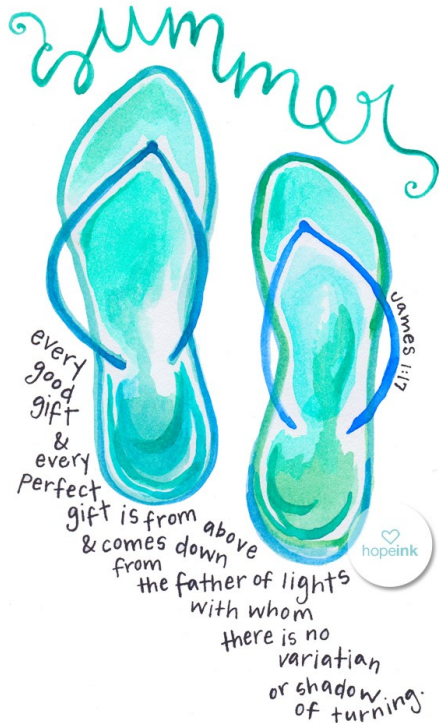 summer
James 1:17
every
good
gift
&
every
perfect
gift is from above
& comes down
from
the father of lights
with whom
there is no
variatian
or shadow
of turning.
hopeink